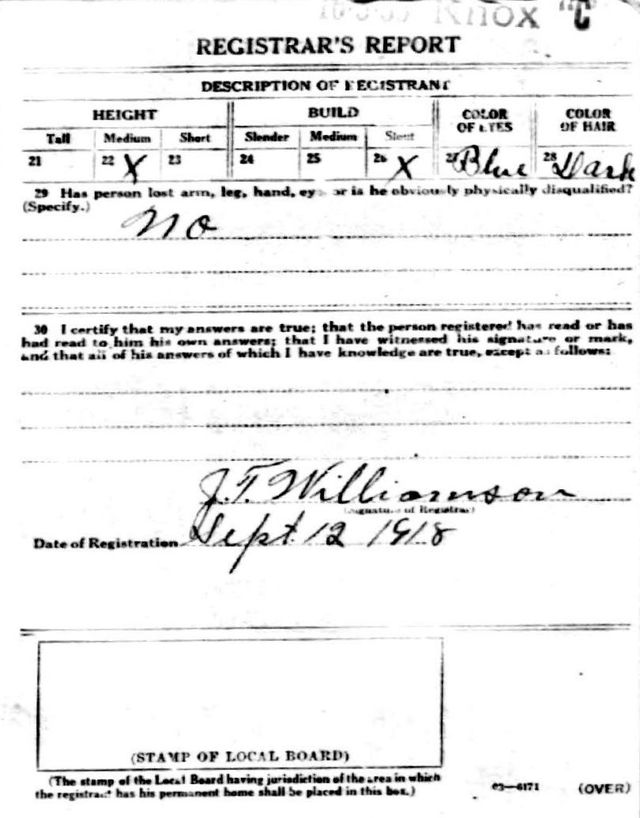 Knox "C"
REGISTRAR'S REPORT
DESCRIPTION OF REGISTRANT
HEIGHT BUILD COLOR OF EYES COLOR OF HAIR
Tall Medium Short Slender Medium Stout
21 22 X 23 24 25 26 X 27 Blue 28 Dark
29 Has person lost arm, leg, hand, eye, or is he obviously physically disqualified?
(Specify.)
No
30 I certify that my answers are true; that the person registered has read or has
had read to him his own answers; that I have witnessed his signature or mark,
and that all of his answers of which I have knowledge are true, except as follows:
J.T. Williamson
(Signature of Registrar)
Date of Registration Sept. 12 1918
(STAMP OF LOCAL BOARD)
(The stamp of the Local Board having jurisdiction of the area in which
the registrant has his permanent home shall be placed in this box.)
03—6171 (OVER)